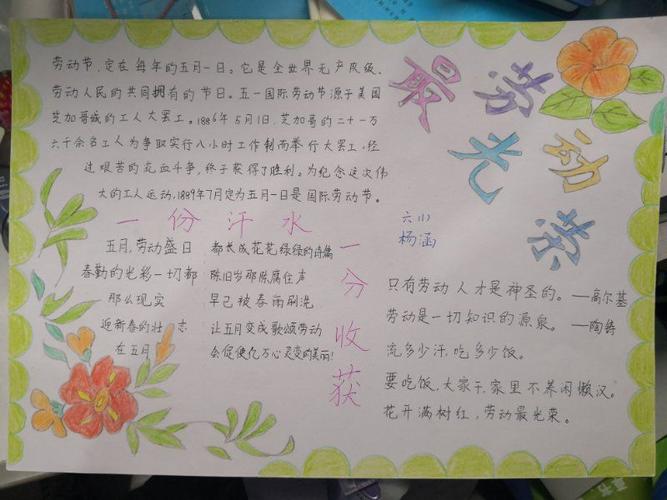 劳动最光荣
劳动节,定在每年的五月一日。它是全世界无产阶级、
劳动人民的共同拥有的节日。五一国际劳动节源于美国
芝加哥城的工人大罢工。1886年5月1日,芝加哥的二十一万
六千余名工人为争取实行八小时工作制而举行大罢工,经
过艰苦的流血斗争,终于获得了胜利。为纪念这次伟
大的工人运动,1889年7月定为五月一日是国际劳动节。
一份汗水
一分收获
五月,劳动盛日
春勤的光彩一切都
那么现实
迎新春的壮志
在五月
都长成花花绿绿的诗篇
陈旧岁那陈腐住声
早已被春雨刷洗
让五月变成歌颂劳动
会促使亿万心灵变的美丽!
六小
杨涵
只有劳动人才是神圣的。——高尔基
劳动是一切知识的源泉。——陶铸
流多少汗,吃多少饭。
要吃饭,大家干,家里不养闲懒汉。
花开满树红,劳动最光荣。